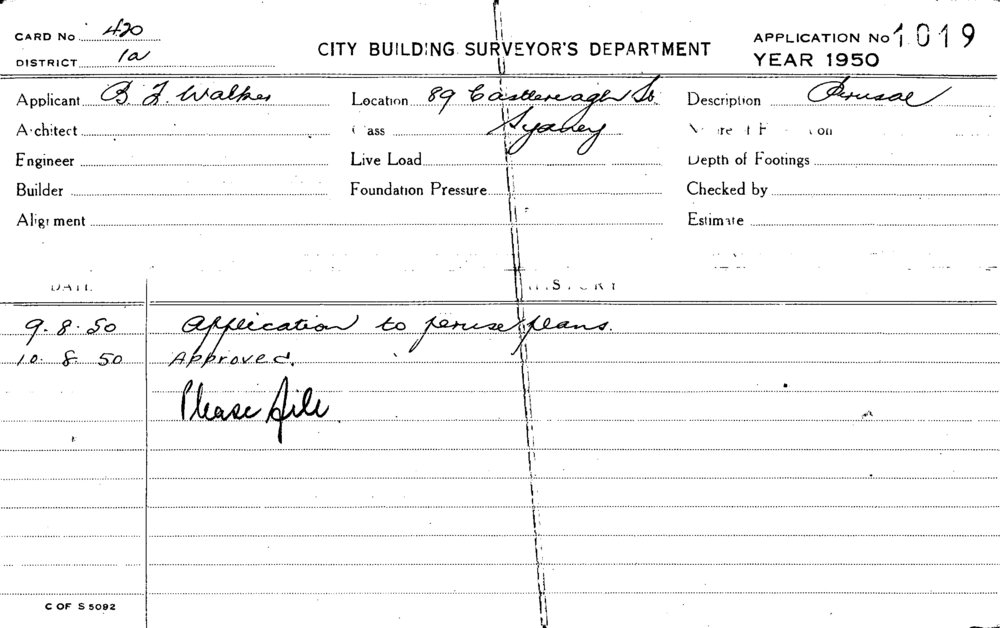 CARD No 420
DISTRICT 1a
CITY BUILDING SURVEYOR'S DEPARTMENT
APPLICATION No 1019
YEAR 1950
Applicant B. J. Walker Location 89 Castlereagh St. Description Perusal
Architect Class Sydney
Engineer Live Load Depth of Footings
Builder Foundation Pressure Checked by
Alignment Estimate
DATE HISTORY
9.8.50 Application to peruse plans.
10.8.50 Approved.
Please file
C OF S 5092